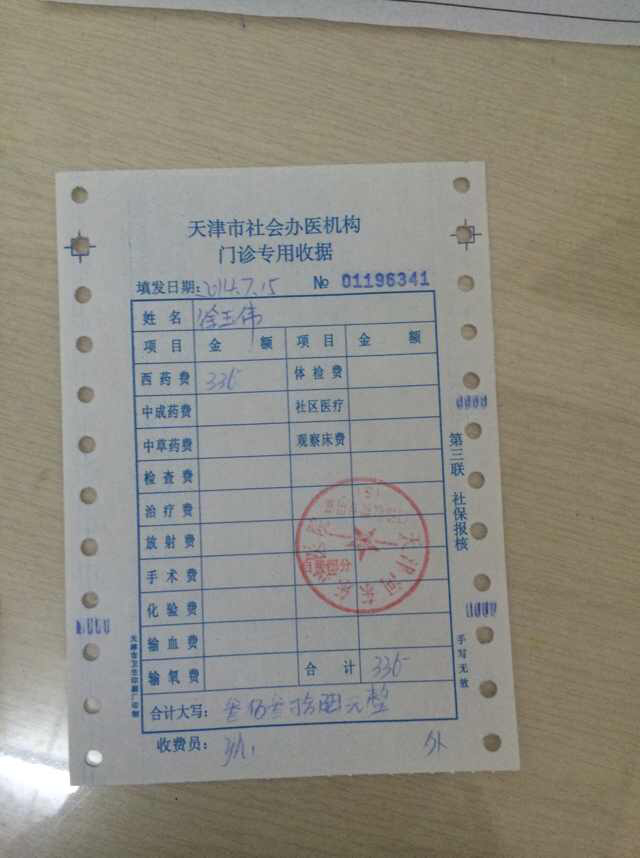 天津市社会办医机构
门诊专用收据
填发日期:2014.7.15 № 01196341
姓名 徐玉伟
项目 金额 项目 金额
西药费 335 体检费
中成药费 社区医疗
中草药费 观察床费
检查费
治疗费
放射费
手术费
化验费
输血费
输氧费 合计 335
合计大写:叁佰叁拾 元整
收费员:
第三联 社保报核
手写无效
自费部分